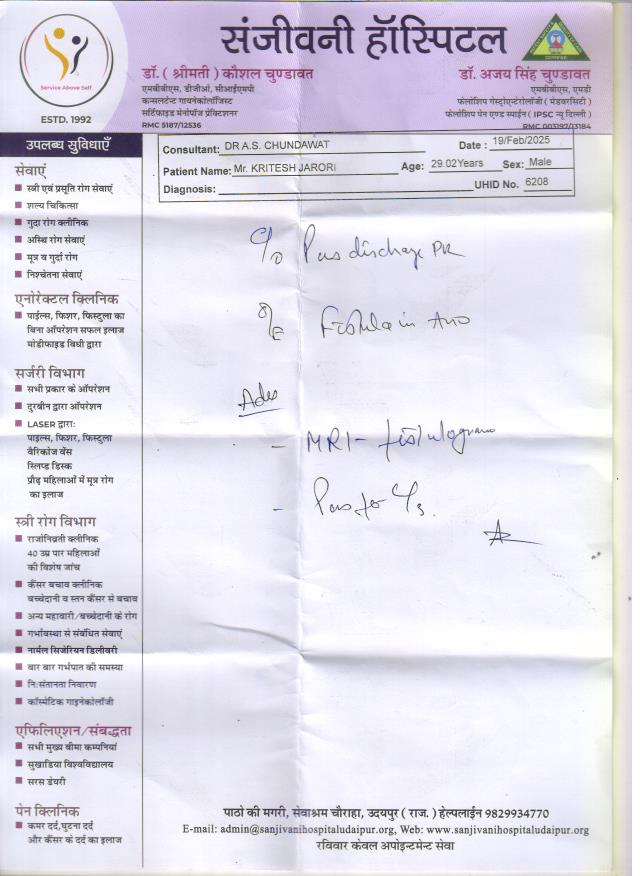 Service Above Self
ESTD. 1992
संजीवनी हॉस्पिटल
डॉ. ( श्रीमती ) कौशल चुण्डावत
एमबीबीएस, डीजीओ, सीआईएमपी
कन्सलटेन्ट गायनेकोलॉजिस्ट
सर्टिफाइड मेनोपॉज प्रेक्टिशनर
RMC 5187/12536
डॉ. अजय सिंह चुण्डावत
एमबीबीएस, एमडी
फेलोशिप गेस्ट्रोएन्टेरोलॉजी ( मेडवरसिटी )
फेलोशिप पेन एण्ड स्पाईन ( IPSC न्यू दिल्ली )
RMC 003197/13184
Consultant: DR A.S. CHUNDAWAT Date : 19/Feb/2025
Patient Name: Mr. KRITESH JARORI Age: 29.02Years Sex: Male
Diagnosis: UHID No. 6208
उपलब्ध सुविधाएँ
सेवाएं
स्त्री एवं प्रसूति रोग सेवाएं
शल्य चिकित्सा
गुदा रोग क्लीनिक
अस्थि रोग सेवाएं
मूत्र व गुर्दा रोग
निश्चेतना सेवाएं
एनोरेक्टल क्लिनिक
पाईल्स, फिशर, फिस्टुला का
बिना ऑपरेशन सफल इलाज
मोडीफाइड विधी द्वारा
सर्जरी विभाग
सभी प्रकार के ऑपरेशन
दुरबीन द्वारा ऑपरेशन
LASER द्वारा:
पाइल्स, फिशर, फिस्टुला
वैरिकोज वेंस
स्लिप्ड डिस्क
प्रौढ़ महिलाओं में मूत्र रोग
का इलाज
स्त्री रोग विभाग
राजोनिव्रती क्लीनिक
40 उम्र पार महिलाओं
की विशेष जांच
कैंसर बचाव क्लीनिक
बच्चेदानी व स्तन कैंसर से बचाव
अन्य महावारी/बच्चेदानी के रोग
गर्भावस्था से संबंधित सेवाएं
नार्मल सिजेरियन डिलीवरी
बार बार गर्भपात की समस्या
नि:संतानता निवारण
कॉस्मेटिक गाइनेकोलॉजी
एफिलिएशन/संबद्धता
सभी मुख्य बीमा कम्पनियां
सुखाडिया विश्वविद्यालय
सरस डेयरी
पेन क्लिनिक
कमर दर्द,घुटना दर्द
और कैंसर के दर्द का इलाज
C/O Pus discharge PR
O/E Fistula in Ano
Adv
- MRI - fistulogram
- Pus for C/S.
पाठो की मगरी, सेवाश्रम चौराहा, उदयपुर ( राज. ) हेल्पलाईन 9829934770
E-mail: admin@sanjivanihospitaludaipur.org, Web: www.sanjivanihospitaludaipur.org
रविवार केवल अपोइन्टमेन्ट सेवा